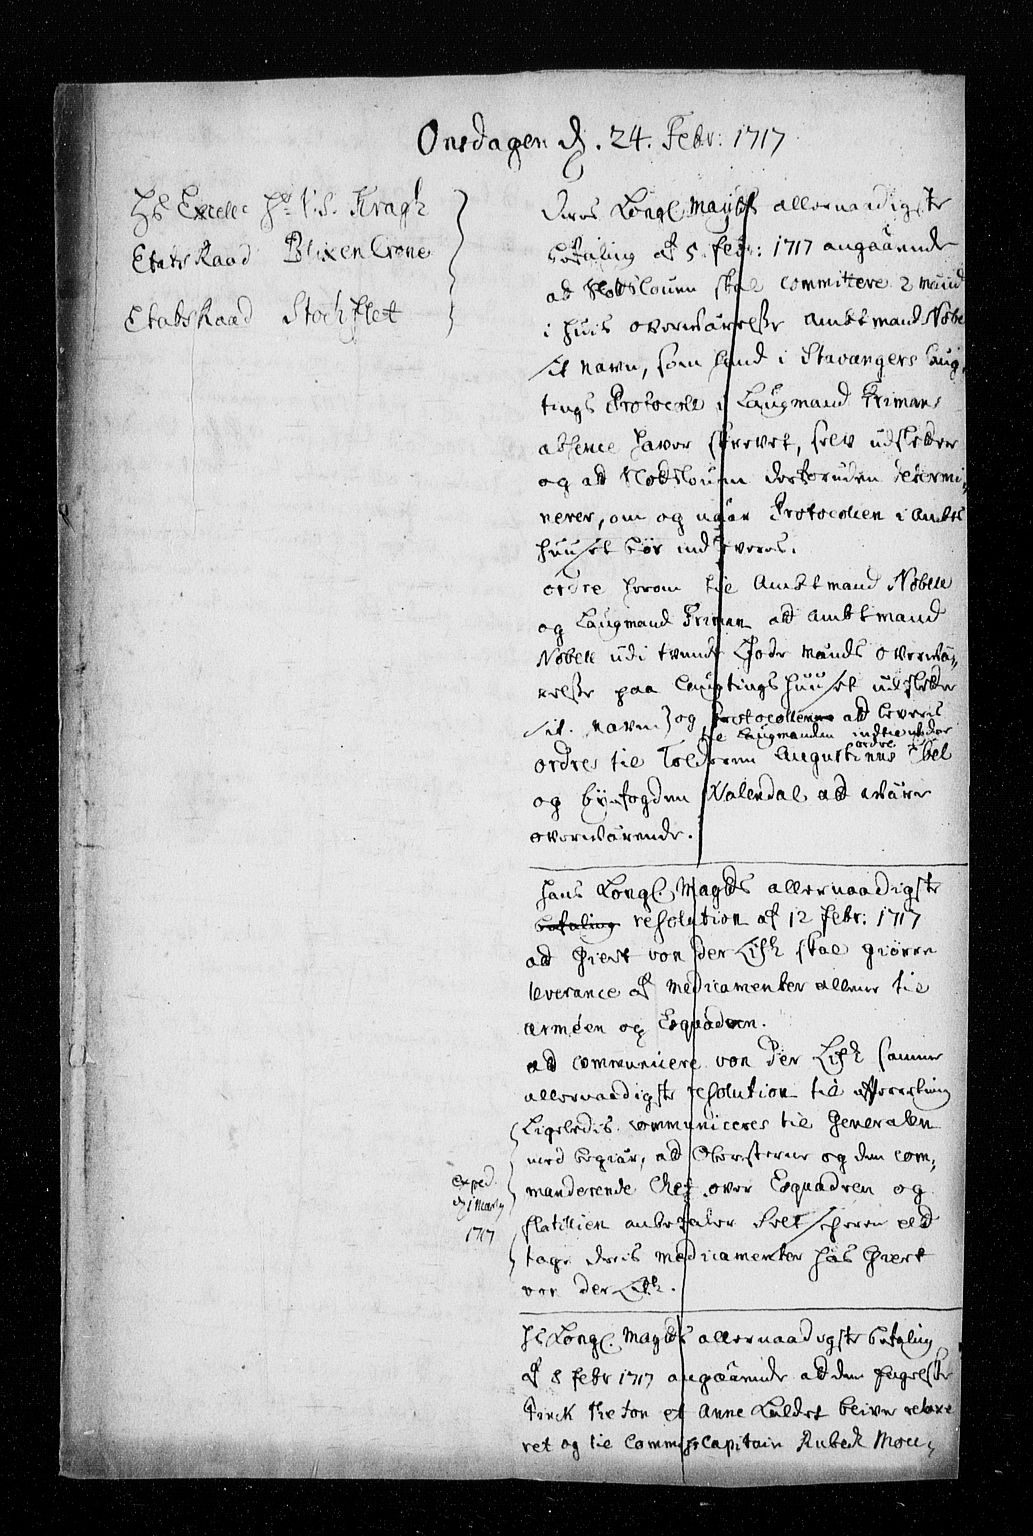 Onsdagen d. 24. Febr: 1717
Hs Excell: Hr V. S. Kragh
Etats Raad Blixencrone
Etabs Raad Stochflet
Deres Kongl Maysts allernaadigste
befaling af 5 febr: 1717 angaaende
at Slotslouen skal committere 2 mænd
i huis overværelse Ambtmand Nobel
sit navn, som hand i Stavangers Laug-
tings Protocoll i Laugmand Trimans
absence haver skrevet, selv udsletter
og at Slotslouen desforuden determi-
nerer, om og naar Protocollen i Ambts
huuset bør indleveres.
ordre herom til Ambtmand Nobell
og Laugmand Priman at Ambtmand
Nobell udi tvende Gode mænds overvæ-
relse paa Laugtings huuset udsletter
sit navn, og Protocollerne at leveris
til Laugmanden indtil videre
ordre
ordres til Tolderen Augustinus Ebel
og byefogden Valendal at være
overværende.
Hans Kongl. Maysts allernaadigste
befaling resolution af 12 febr: 1717
at Giert von der Lish skal giøre
leverance af medicamenter allene til
armeen og Esquadren.
at communicere von der Lish samme
allernaadigste resolution til efterretning
Ligeledis communiceres til Generalen
med begiær, at Obersterne og den com-
manderende Chef over Esquadren og
flatillien anbefaler Feltscheren at
tage deris medicamenter hos Giert
von der Lish.
exped.
d. 1 Marty
1717
Hs Kongl. Maysts allernaadigste befaling
af 8 febr 1717 angaaende at den Engelske
Finck Keton et Anne Luldet bliver relaxe
ret og til Commisscapitain Rubech Mou-